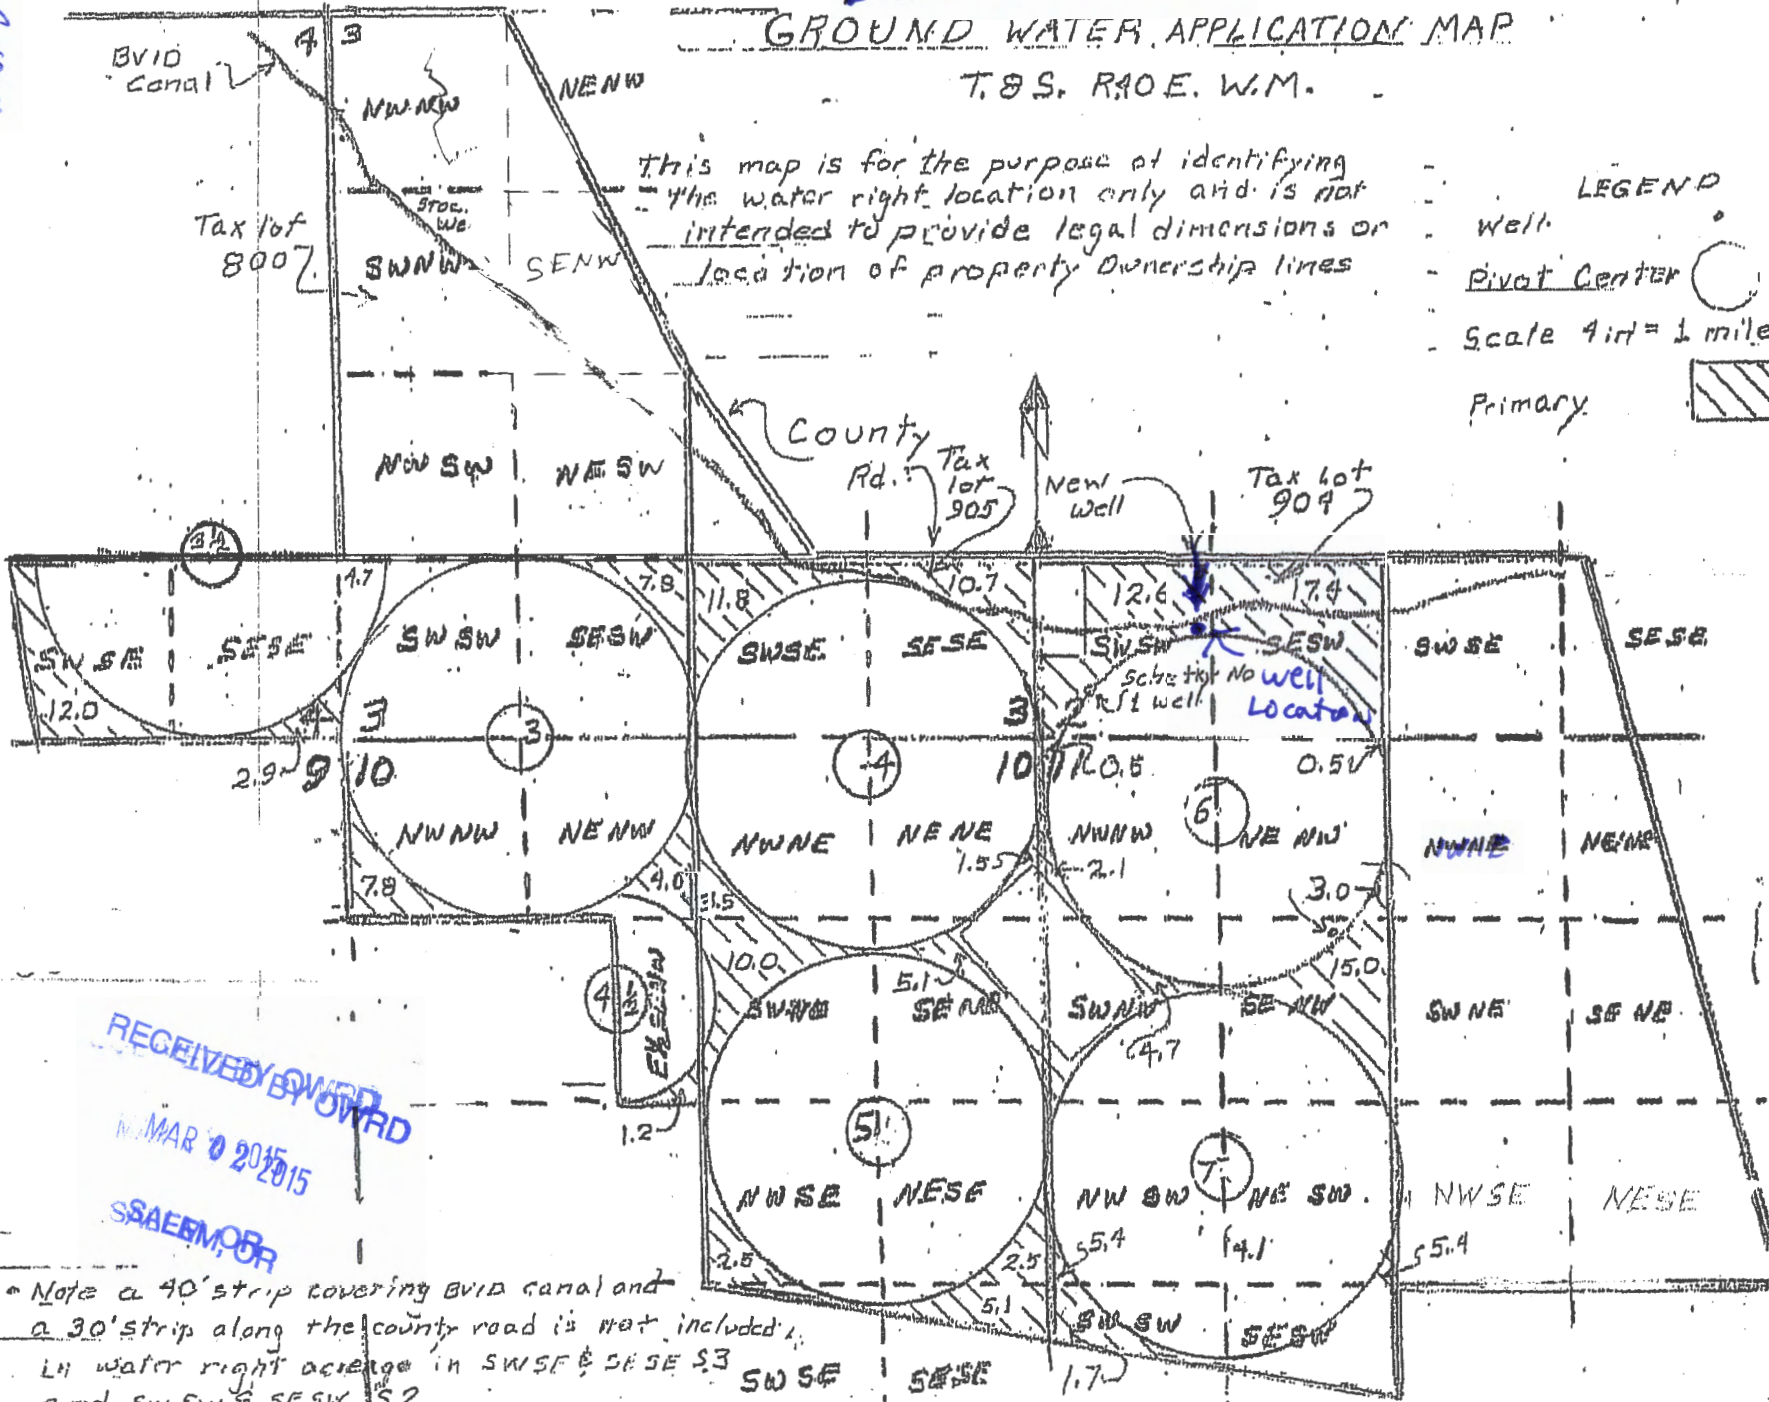 GROUND WATER APPLICATION MAP
T. 8 S. R40 E. W.M.
This map is for the purpose of identifying
the water right location only and is not
intended to provide legal dimensions or
location of property Ownership lines
LEGEND
Well
Pivot Center
Scale 4 in = 1 mile
Primary
BVID
Canal
4 3
NWNW
NENW
Tax lot
800
SWNW
SENW
NWSW
NESW
County
Rd.
Tax
lot
905
New
well
Tax Lot
904
4.7
7.8
11.8
10.7
12.6
17.4
SWSE
SESE
SWSW
SESW
SWSE
SESE
SWSW
SESW
SWSE
SESE
well
Location
12.0
3
3
2
2.9
9 10
3
4
10 11
0.5
0.5
6
NWNW
NENW
NWNE
NENE
NWNW
NENW
NWNE
NENE
1.5
2.1
3.0
7.8
4.0
3.5
10.0
5.1
15.0
4 1/2
SWNE
SENE
SWNW
SENW
SWNE
SENE
4.7
1.2
5
7
NWSE
NESE
NWSW
NESW
NWSE
NESE
2.5
2.5
5.4
4.1
5.4
5.1
SWSW
SESW
SWSE
SESE
1.7
RECEIVED BY OWRD
MAR 02 2015
SALEM, OR
Note a 40' strip covering BVID canal and
a 30' strip along the county road is not included
in water right acreage in SWSE & SESE S3
and SWSW & SESW S2